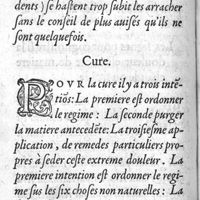 dents) se hastent trop subit les arracher
sans le conseil de plus auisés qu'ils ne
sont quelquefois.
Cure.
POVR la cure il y a trois intẽ-
tiõs: La premiere est ordonner
le regime : La seconde purger
la matiere antecedẽte: La troisiesme ap-
plication, de remedes particuliers pro-
pres à seder ceste extreme douleur. La
premiere intention est ordonner le regi-
me sus les six choses non naturelles : La